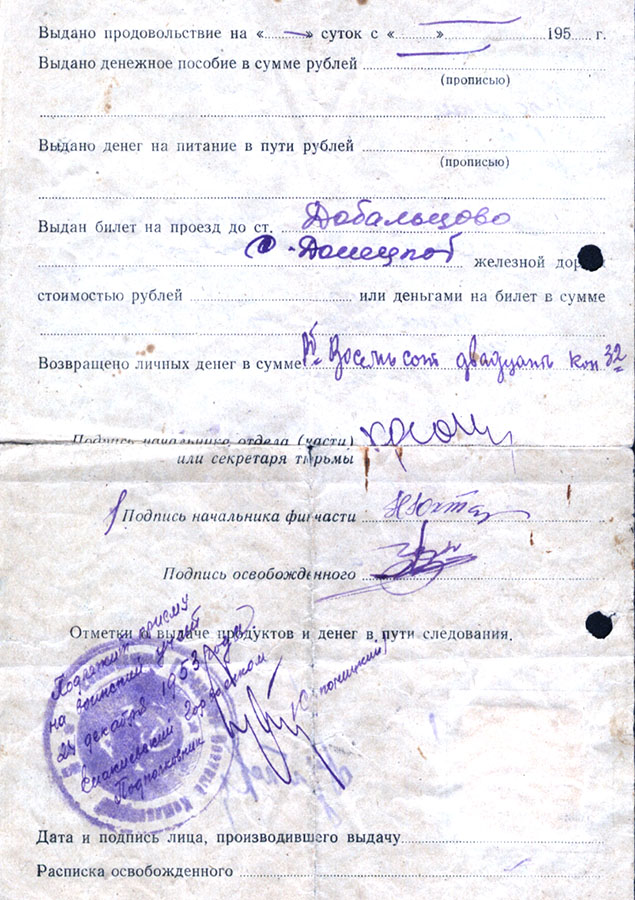 Выдано продовольствие на «.....—....» суток с «............»............................195.....г.
Выдано денежное пособие в сумме рублей
(прописью)
Выдано денег на питание в пути рублей
(прописью)
Выдан билет на проезд до ст. Добальцово
Донецкой железной дор
стоимостью рублей ................................ или деньгами на билет в сумме
Возвращено личных денег в сумме Восемьсот двадцать коп. 32
Подпись начальника отдела (части)
или секретаря тюрьмы
Подпись начальника финчасти
Подпись освобожденного
Отметки о выдаче продуктов и денег в пути следования.
Подлежит приему
на воинский учет
декабря 1953 года
Енакиевский Горвоенком
Подполковник
Дата и подпись лица, производившего выдачу
Расписка освобожденного